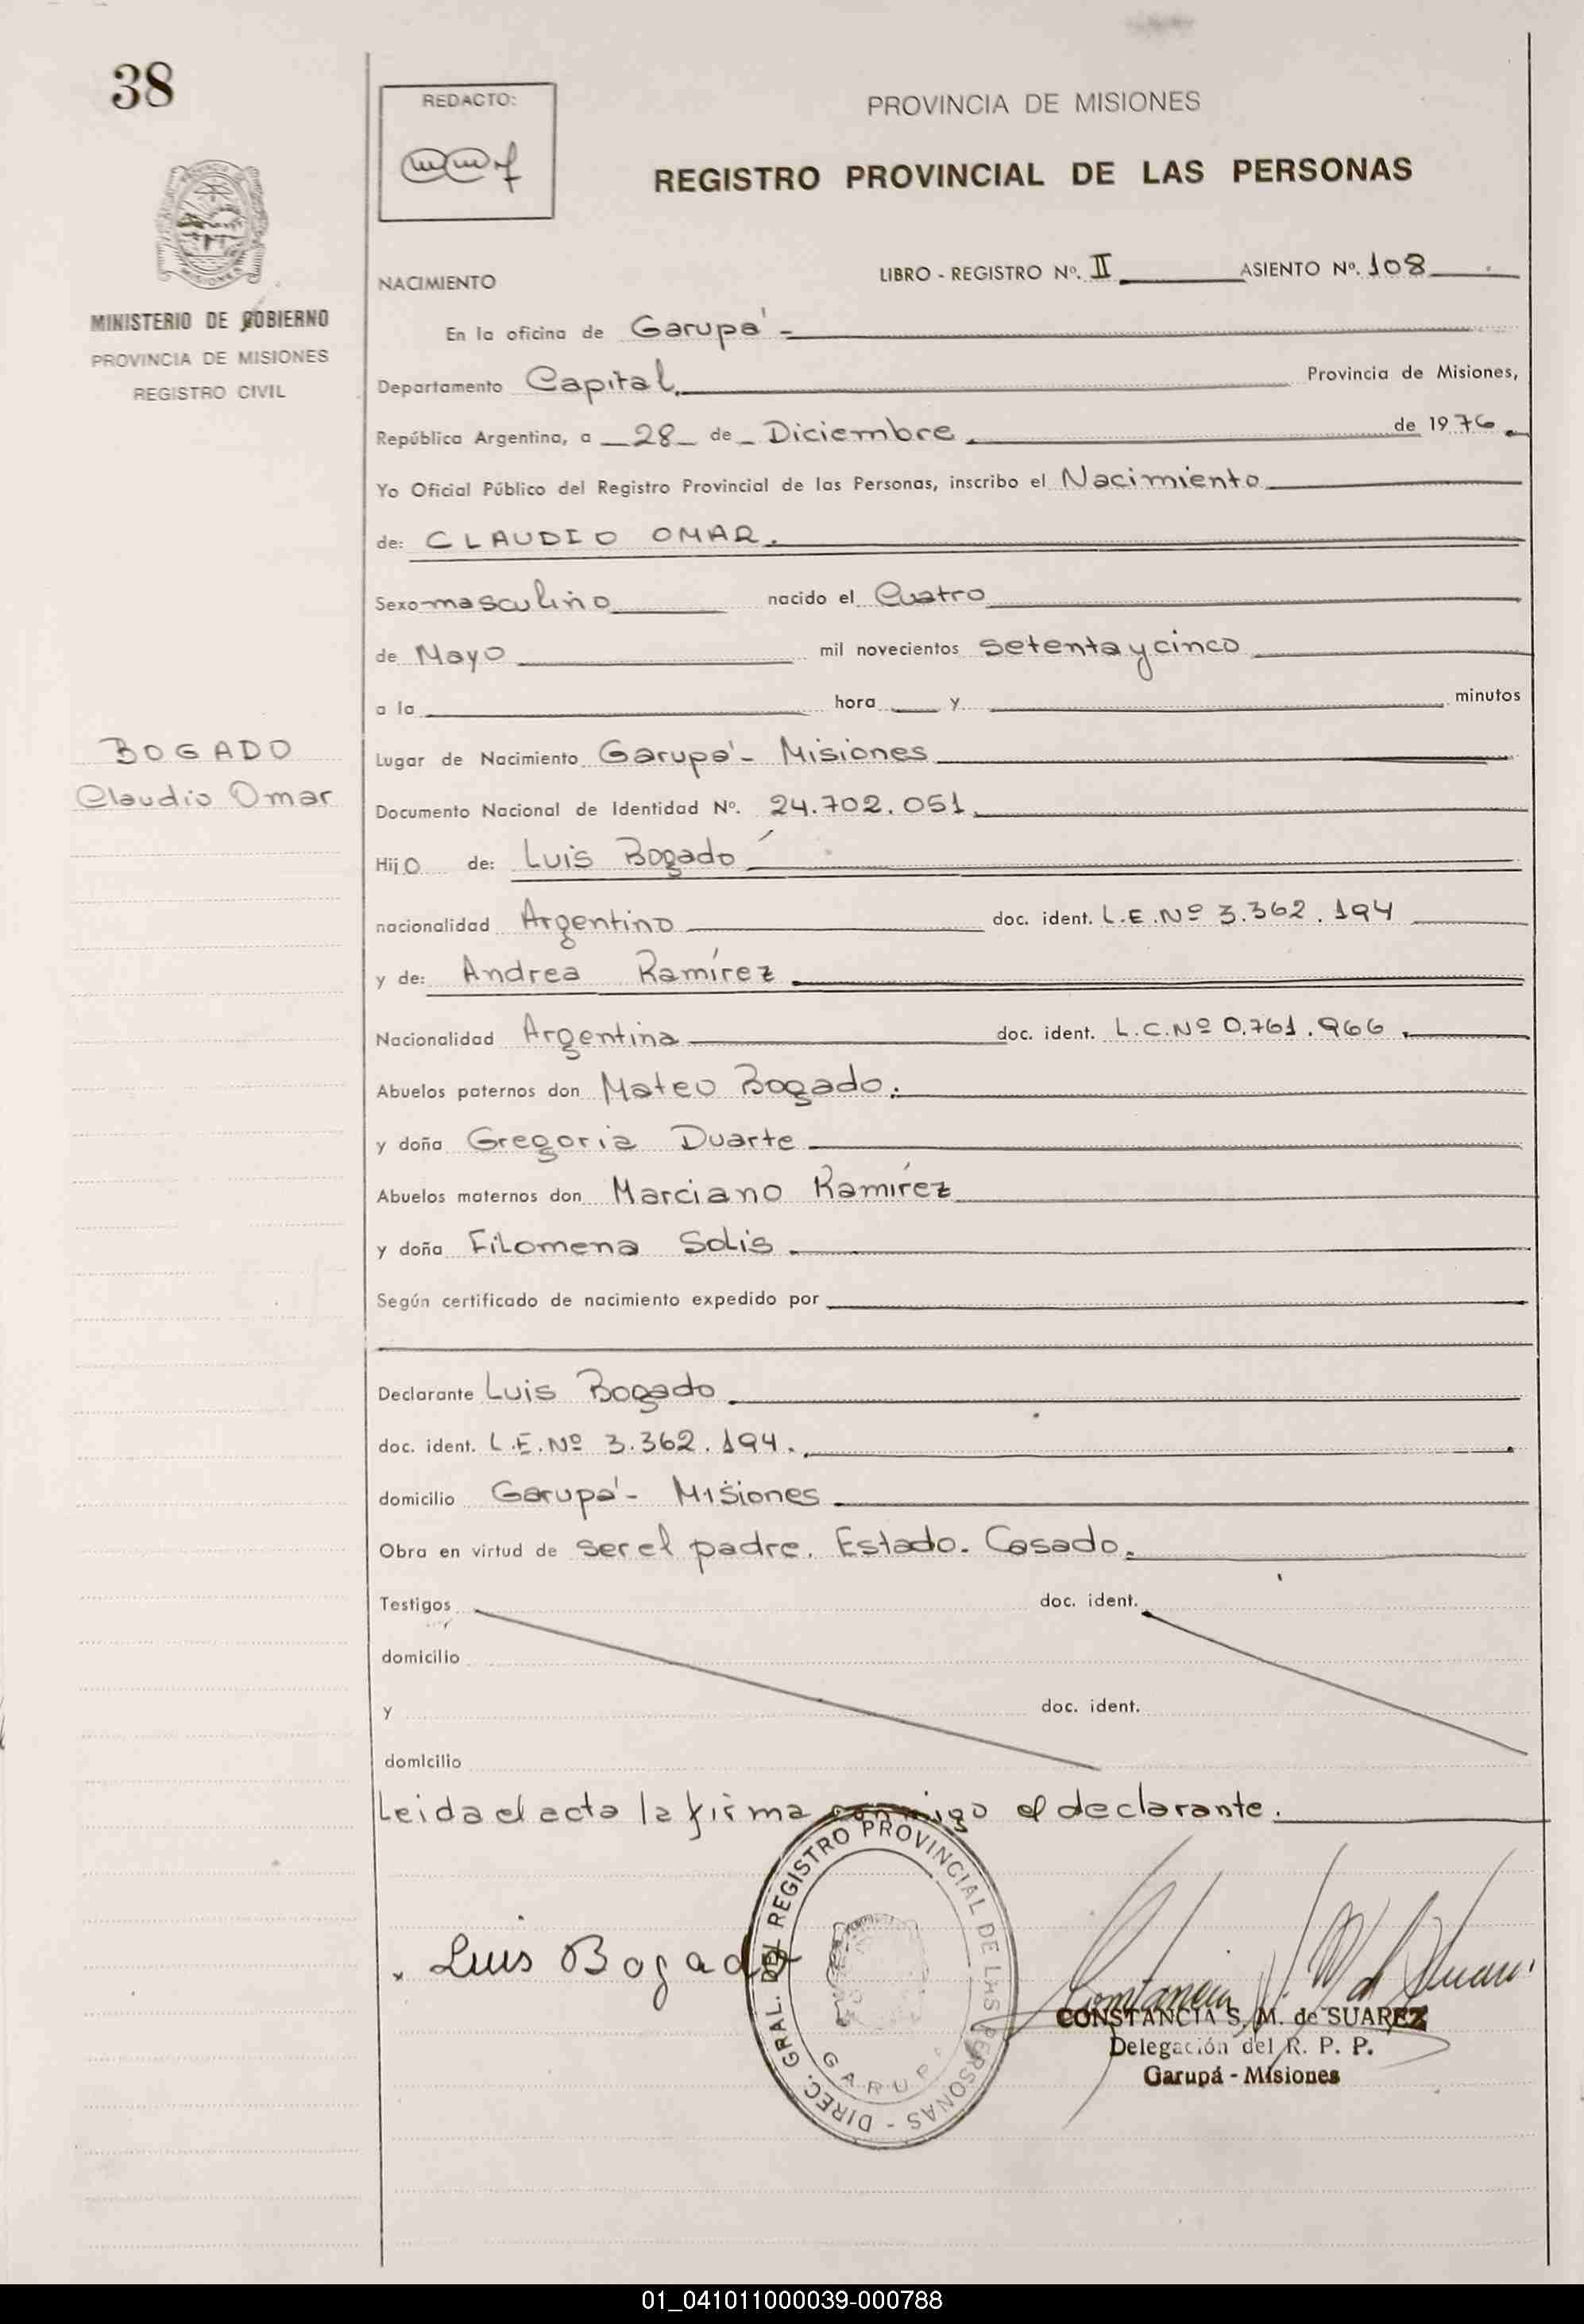 38
REDACTO:
PROVINCIA DE MISIONES
REGISTRO PROVINCIAL DE LAS PERSONAS
MINISTERIO DE GOBIERNO
PROVINCIA DE MISIONES
REGISTRO CIVIL
NACIMIENTO LIBRO - REGISTRO Nº. II ASIENTO Nº. 108
En la oficina de Garupá -
Departamento Capital. Provincia de Misiones,
República Argentina, a 28 de Diciembre. de 1976.
Yo Oficial Público del Registro Provincial de las Personas, inscribo el Nacimiento
de: CLAUDIO OMAR.
Sexo masculino nacido el Cuatro
de Mayo mil novecientos setenta y cinco
a la hora y minutos
BOGADO
Claudio Omar
Lugar de Nacimiento Garupá - Misiones
Documento Nacional de Identidad Nº. 24.702.051.
Hijo de: Luis Bogado
nacionalidad Argentino doc. ident. L.E.Nº 3.362.194
y de: Andrea Ramírez
Nacionalidad Argentina doc. ident. L.C.Nº 0.761.966.
Abuelos paternos don Mateo Bogado.
y doña Gregoria Duarte
Abuelos maternos don Marciano Ramírez
y doña Filomena Solis.
Según certificado de nacimiento expedido por
Declarante Luis Bogado.
doc. ident. L.E.Nº 3.362.194.
domicilio Garupá - Misiones
Obra en virtud de ser el padre. Estado. Casado.
Testigos doc. ident.
domicilio
y doc. ident.
domicilio
Leida el acta la firma conmigo el declarante.
Luis Bogado
DIREC. GRAL. DEL REGISTRO PROVINCIAL DE LAS PERSONAS - GARUPA
CONSTANCIA S. M. de SUAREZ
Delegación del R. P. P.
Garupá - Misiones
01_041011000039-000788